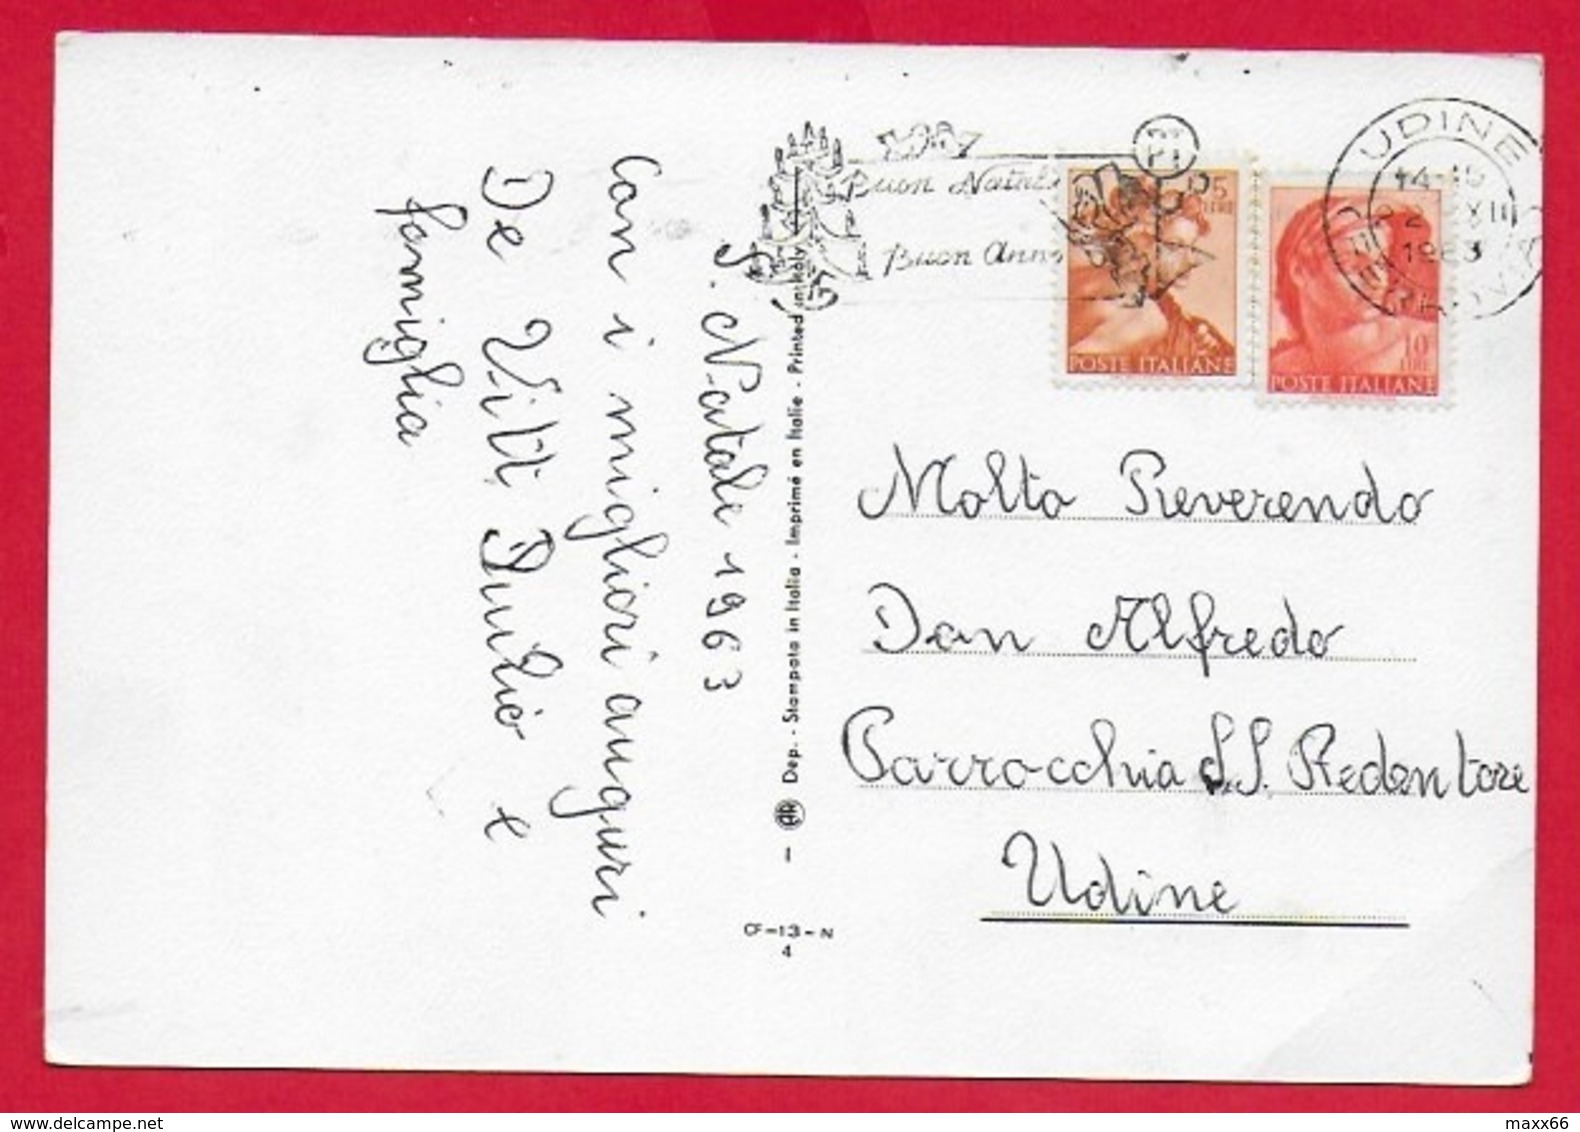 S. Natale 1963
Con i migliori auguri
De Vitt Duilio e
famiglia
Dep. - Stampata in Italia - Imprimé en Italie - Printed in Italy
CF-13-N
4
Buon Natale
Buon Anno
PT
5
LIRE
POSTE ITALIANE
10
LIRE
POSTE ITALIANE
UDINE
1963
FERROVIA
Molto Reverendo
Don Alfredo
Parrocchia S.S. Redentore
Udine
maxx66